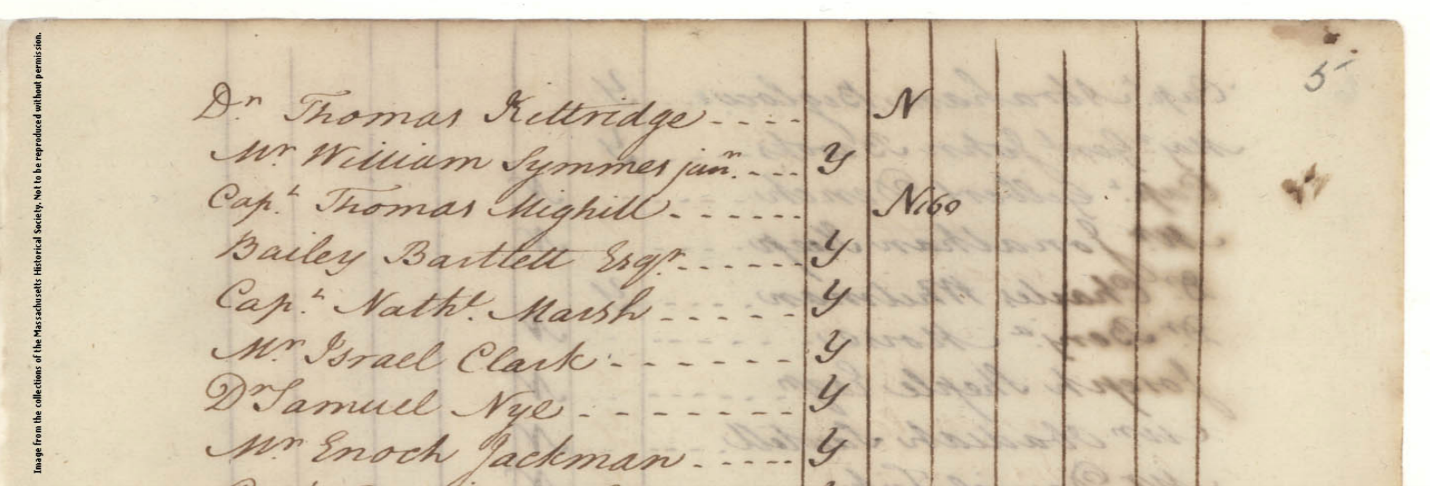 5
Dr. Thomas Kittridge . . . . N
Mr William Symmes junr. . . . Y
Capt. Thomas Mighill . . . . . . N 160
Bailey Bartlett Esqr. . . . . . . Y
Capt. Nathl. Marsh . . . . . . Y
Mr Israel Clark . . . . . . . Y
Dr Samuel Nye . . . . . . . . Y
Mr Enoch Jackman . . . . . Y
Image from the collections of the Massachusetts Historical Society. Not to be reproduced without permission.